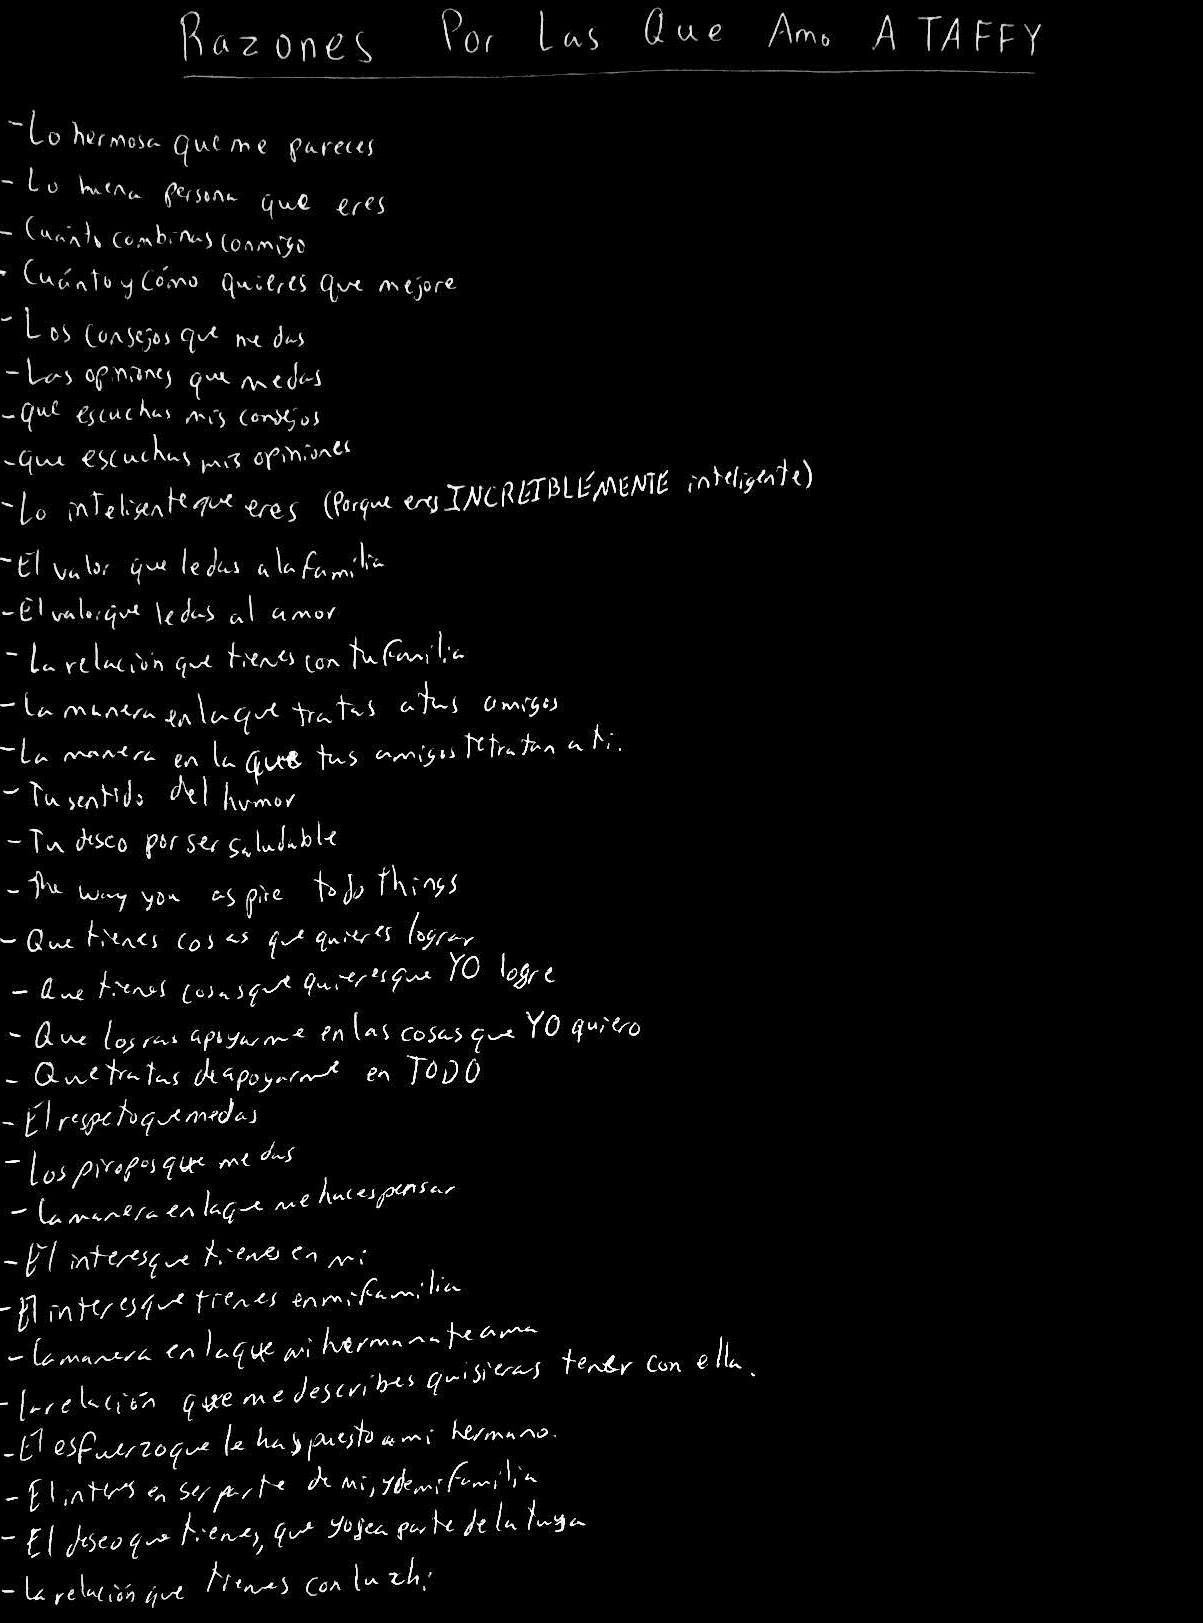 Razones Por Las Que Amo A TAFFY
- Lo hermosa que me pareces
- Lo buena persona que eres
- Cuánto combinas conmigo
- Cuánto y Cómo quieres que mejore
- Los consejos que me das
- Las opiniones que me das
- que escuchas mis consejos
- que escuchas mis opiniones
- Lo inteligente que eres (Porque eres INCREIBLEMENTE inteligente)
- El valor que le das a la familia
- El valor que le das al amor
- La relación que tienes con tu familia
- La manera en la que tratas a tus amigos
- La manera en la que tus amigos te tratan a ti.
- Tu sentido del humor
- Tu deseo por ser saludable
- The way you aspire to do things
- Que tienes cosas que quieres lograr
- Que tienes cosas que quieres que YO logre
- Que logras apoyarme en las cosas que YO quiero
- Que tratas de apoyarme en TODO
- El respeto que me das
- Los piropos que me das
- La manera en la que me haces pensar
- El interes que tienes en mi
- El interes que tienes en mi familia
- La manera en la que mi hermana te ama
- La relación que me describes quisieras tener con ella.
- El esfuerzo que le has puesto a mi hermano.
- El interes en ser parte de mi, y de mi familia
- El deseo que tienes, que yo sea parte de la tuya
- La relación que tienes con luzhi